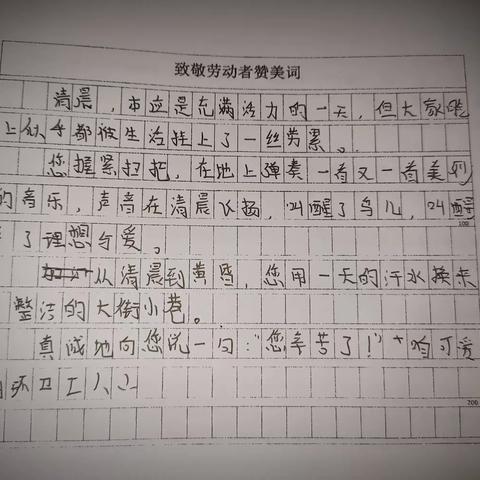 致敬劳动者赞美词
清晨，本应是充满活力的一天，但大家脸
上似乎都被生活挂上了一丝劳累。
您握紧扫把，在地上弹奏一首又一首美妙
的音乐，声音在清晨飞扬，叫醒了鸟儿，叫醒
了理想与爱。
从清晨到黄昏，您用一天的汗水换来
整洁的大街小巷。
真诚地向您说一句："您辛苦了！"
可爱
环卫工人
100
200